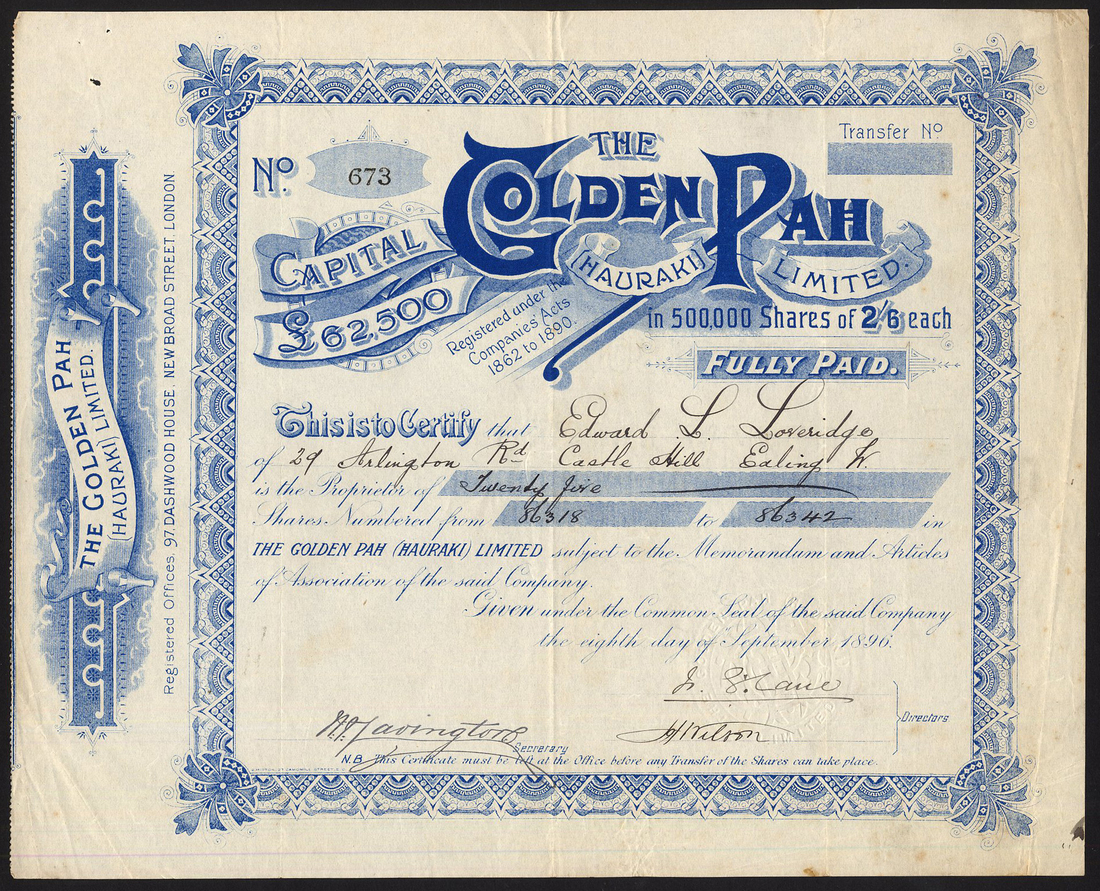 THE GOLDEN PAH
(HAURAKI) LIMITED.
Registered Offices, 97, DASHWOOD HOUSE, NEW BROAD STREET, LONDON
No. 673
Transfer No
THE
GOLDEN PAH
(HAURAKI) LIMITED.
CAPITAL
£62,500
Registered under the
Companies' Acts
1862 to 1890.
in 500,000 Shares of 2/6 each
FULLY PAID.
This is to Certify that Edward L. Loveridge
of 29 Arlington Rd Castle Hill Ealing W
is the Proprietor of Twenty five
Shares Numbered from 86318 to 86342 in
THE GOLDEN PAH (HAURAKI) LIMITED subject to the Memorandum and Articles
of Association of the said Company.
Given under the Common Seal of the said Company
the eighth day of September 1896.
Directors
Wilson
Secretary
N.B. This Certificate must be left at the Office before any Transfer of the Shares can take place.